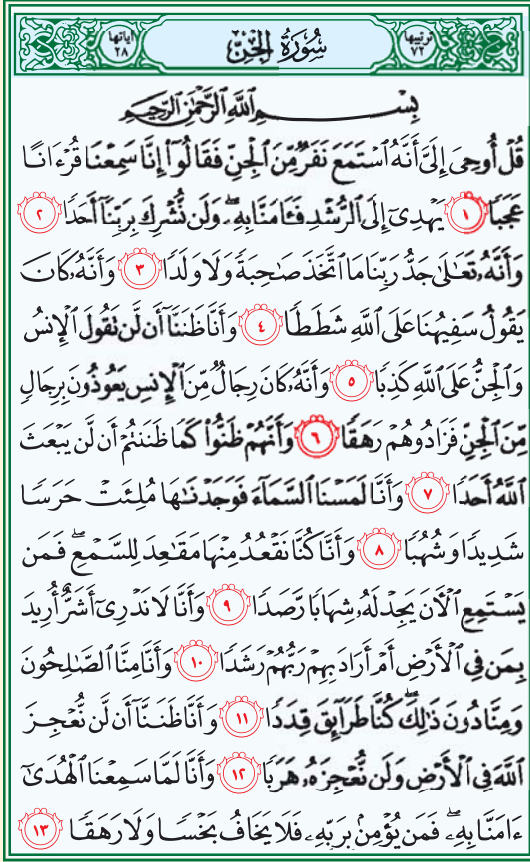 ترتيبها ٧٢ سُورَةُ الجِنِّ آياتها ٢٨
بِسْمِ اللَّهِ الرَّحْمَٰنِ الرَّحِيمِ
قُلْ أُوحِيَ إِلَيَّ أَنَّهُ ٱسْتَمَعَ نَفَرٌ مِّنَ ٱلْجِنِّ فَقَالُوٓا۟ إِنَّا سَمِعْنَا قُرْءَانًا
عَجَبًا ١ يَهْدِىٓ إِلَى ٱلرُّشْدِ فَـَٔامَنَّا بِهِۦ ۖ وَلَن نُّشْرِكَ بِرَبِّنَآ أَحَدًا ٢
وَأَنَّهُۥ تَعَٰلَىٰ جَدُّ رَبِّنَا مَا ٱتَّخَذَ صَٰحِبَةً وَلَا وَلَدًا ٣ وَأَنَّهُۥ كَانَ
يَقُولُ سَفِيهُنَا عَلَى ٱللَّهِ شَطَطًا ٤ وَأَنَّا ظَنَنَّآ أَن لَّن تَقُولَ ٱلْإِنسُ
وَٱلْجِنُّ عَلَى ٱللَّهِ كَذِبًا ٥ وَأَنَّهُۥ كَانَ رِجَالٌ مِّنَ ٱلْإِنسِ يَعُوذُونَ بِرِجَالٍ
مِّنَ ٱلْجِنِّ فَزَادُوهُمْ رَهَقًا ٦ وَأَنَّهُمْ ظَنُّوا۟ كَمَا ظَنَنتُمْ أَن لَّن يَبْعَثَ
ٱللَّهُ أَحَدًا ٧ وَأَنَّا لَمَسْنَا ٱلسَّمَآءَ فَوَجَدْنَٰهَا مُلِئَتْ حَرَسًا
شَدِيدًا وَشُهُبًا ٨ وَأَنَّا كُنَّا نَقْعُدُ مِنْهَا مَقَٰعِدَ لِلسَّمْعِ ۖ فَمَن
يَسْتَمِعِ ٱلْـَٔانَ يَجِدْ لَهُۥ شِهَابًا رَّصَدًا ٩ وَأَنَّا لَا نَدْرِىٓ أَشَرٌّ أُرِيدَ
بِمَن فِى ٱلْأَرْضِ أَمْ أَرَادَ بِهِمْ رَبُّهُمْ رَشَدًا ١٠ وَأَنَّا مِنَّا ٱلصَّٰلِحُونَ
وَمِنَّا دُونَ ذَٰلِكَ ۖ كُنَّا طَرَآئِقَ قِدَدًا ١١ وَأَنَّا ظَنَنَّآ أَن لَّن نُّعْجِزَ
ٱللَّهَ فِى ٱلْأَرْضِ وَلَن نُّعْجِزَهُۥ هَرَبًا ١٢ وَأَنَّا لَمَّا سَمِعْنَا ٱلْهُدَىٰٓ
ءَامَنَّا بِهِۦ ۖ فَمَن يُؤْمِنۢ بِرَبِّهِۦ فَلَا يَخَافُ بَخْسًا وَلَا رَهَقًا ١٣